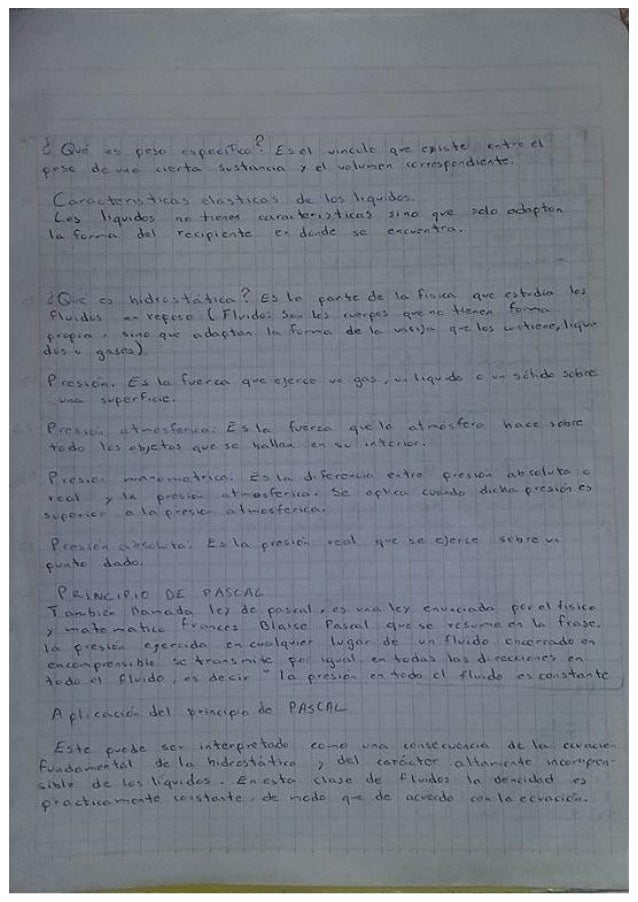 ¿Qué es peso especifico? Es el vinculo que existe entre el
peso de una cierta sustancia y el volumen correspondiente.
Caracteristicas elasticas de los liquidos.
Los liquidos no tienen caracteristicas sino que solo adoptan
la forma del recipiente en donde se encuentra.
¿Qué es hidrostática? Es la parte de la fisica que estudia los
fluidos en reposo (Fluido: Son los cuerpos que no tienen forma
propia, sino que adaptan la forma de la vasija que los contiene, liqui-
dos o gases).
Presión. Es la fuerza que ejerce un gas, un liquido o un sólido sobre
una superficie.
Presión atmosferica: Es la fuerza que la atmósfera hace sobre
todo los objetos que se hallan en su interior.
Presion manometrica. Es la diferencia entre presion absoluta o
real y la presion atmosferica. Se aplica cuando dicha presion es
superior a la presion atmosferica.
Presión absoluta: Es la presión real que se ejerce sobre un
punto dado.
PRINCIPIO DE PASCAL
También llamada ley de pascal, es una ley enunciada por el fisico
y matematico frances Blaise Pascal que se resume en la frase.
la presión ejercida en cualquier lugar de un fluido encerrado en
encomprensible se transmite por igual en todas las direcciones en
todo el fluido, es decir "la presion en todo el fluido es constante
Aplicación del principio de PASCAL
Este puede ser interpretado como una consecuencia de la ecuacion
fundamental de la hidrostática y del carácter altamente incompren-
sible de los liquidos. En esta clase de fluidos la dencidad es
practicamente constante, de modo que de acuerdo con la ecuación.